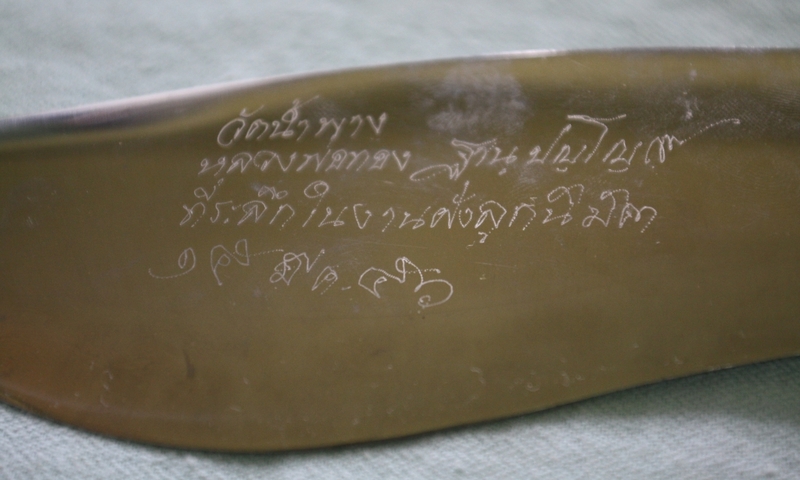 วัดน้ำพาง
หลวงพ่อทอง ฐานุปญฺโญ
ที่ระลึกในงานฝังลูกนิมิต
๑๔ มค. ๔๖